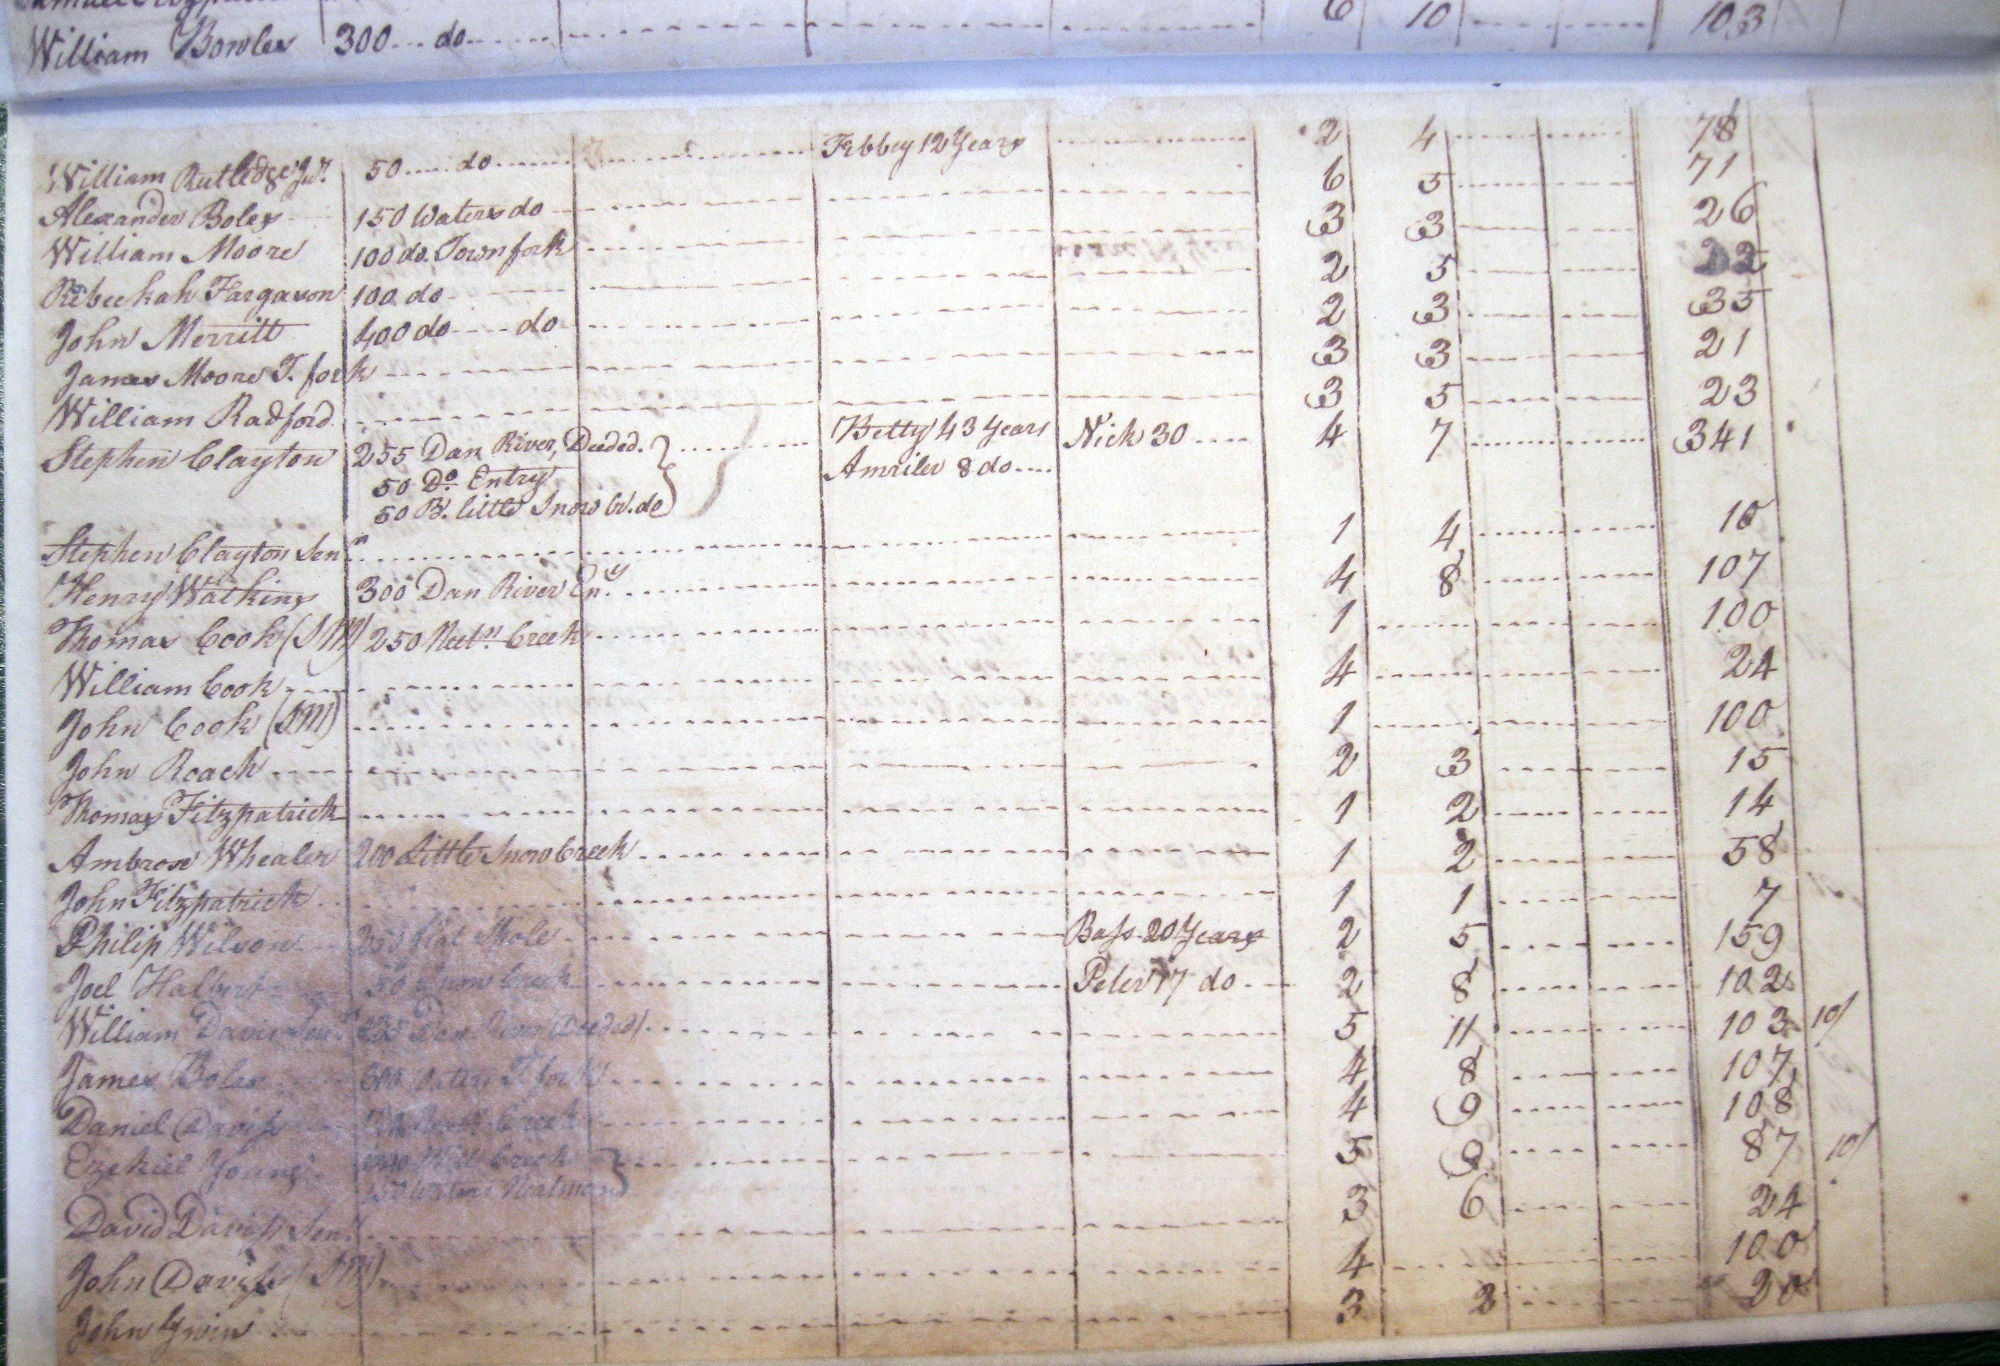 6 10 103
William Bowles 300 do
William Rutledge Jur. 50 do Febbey 12 Years 2 4 78
Alexander Boles 150 Waters do 6 5 71
William Moore 100 do. Town fork 3 3 26
Rebeckah Fargason 100 do 2 5 22
John Merritt 400 do do 2 3 35
James Moore T. fork 3 3 21
William Radford 3 5 23
Stephen Clayton 255 Dan River, Deeded. Betty 43 Years Nick 30 4 7 341
50 Do. Entry Amriler 8 do
50 B. little Snow Cr. do
Stephen Clayton Senr. 1 4 10
Henry Watkins 300 Dan River Eny. 4 8 107
Thomas Cook (SM) 250 Creek 1 100
William Cook 4 24
John Cook (SM) 1 100
John Roach 2 3 15
Thomas Fitzpatrick 1 2 14
Ambrose Whealer 200 Little Snow Creek 1 2 58
John Fitzpatrick 1 1 7
Philip Wilson 250 flat Shole Bass 20 Years 2 5 159
Joel Halbert 50 Snow Creek Peter 17 do 2 8 102
William Davis Senr. Dan River (Deeded) 5 11 103 10/
James Boles 300 Waters T. fork 4 8 107
Daniel Davis Creek 4 9 108
Ezekiel Young Creek 5 9 87 10/
150 Waters
David Davis Senr. 3 6 24
John Davis (SM) 4 100
John Gwin 3 3 20